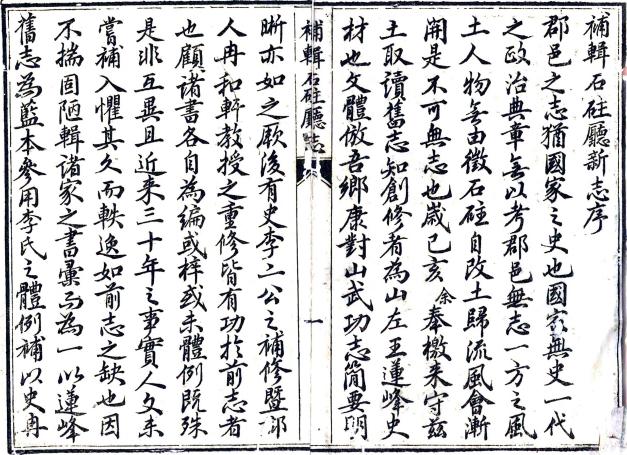 補輯石砫廳新志序
郡邑之志猶國家之史也國家無史一代
之政治典章無以考郡邑無志一方之風
土人物無由徵石砫自改土歸流風會漸
開是不可無志也歲己亥余奉檄来守茲
土取讀舊志知創修者為山左王蓮峰史
材也文體倣吾鄉康對山武功志簡要明
補輯石砫廳志
一
晰亦如之厥後有史李二公之補修暨郡
人冉和軒教授之重修皆有功於前志者
也顧諸書各自為編或梓或未體例既殊
是非互異且近来三十年之事實人文未
嘗補入懼其久而軼逸如前志之缺也因
不揣固陋輯諸家之書彚而為一以蓮峰
舊志為藍本參用李氏之體例補以史冉